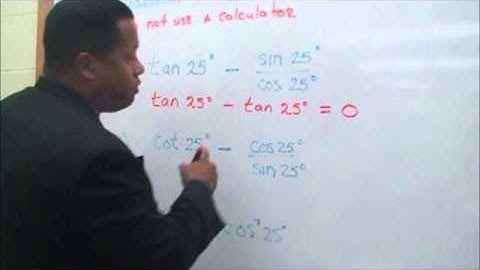 not use a calculator
tan 25° - sin 25° / cos 25°
tan 25° - tan 25° = 0
cot 25° - cos 25° / sin 25°
25°